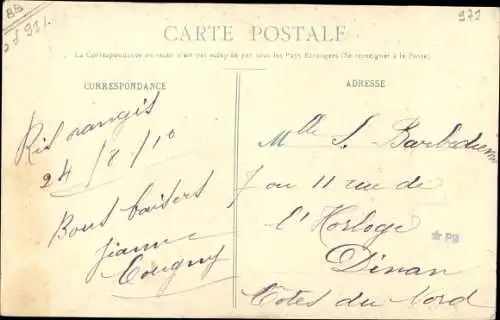 BB
971
CARTE POSTALE
La Correspondance au recto n'est pas acceptée par tous les Pays Etrangers (Se renseigner à la Poste)
CORRESPONDANCE
Ris orangis
24/8/10
Bons baisers
Jianne
Cougny
ADRESSE
Mlle S. Barbedienne
7 ou 11 rue de
l'Horloge
Dinan
Cotes du Nord
* PB